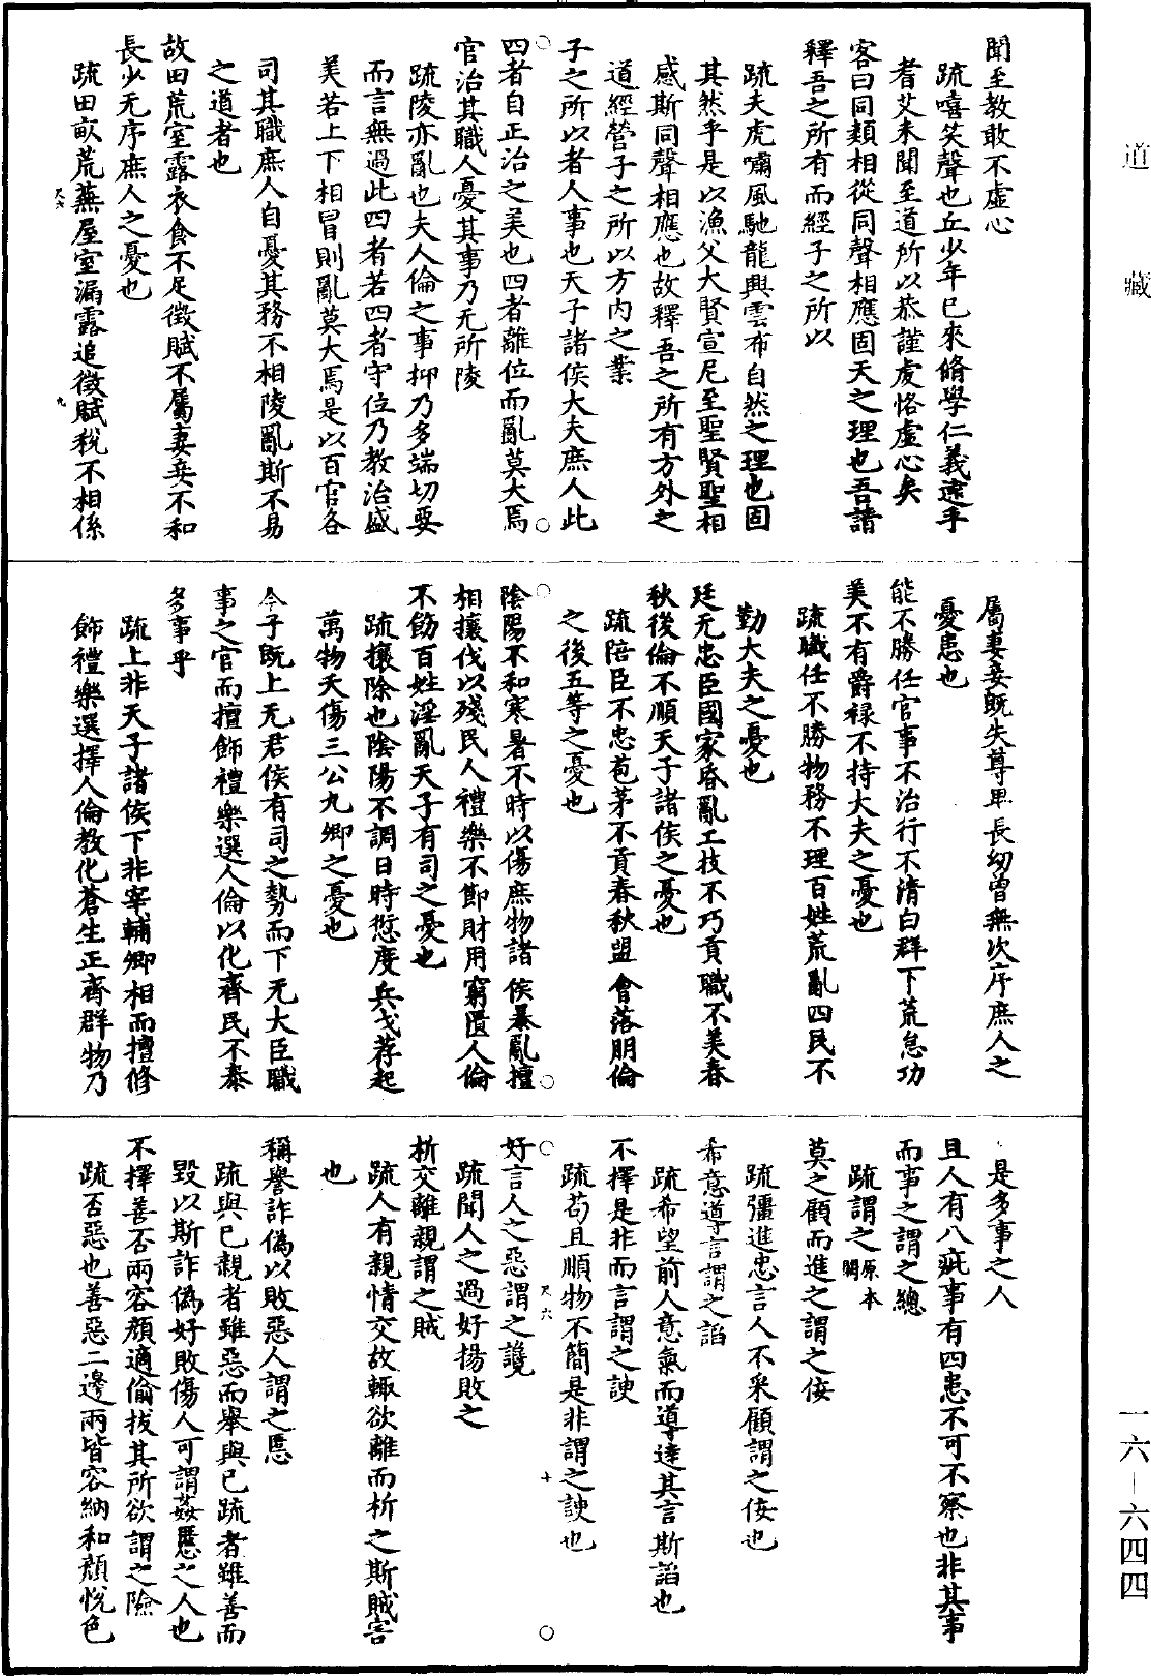 道藏
聞至教敢不虛心
疏嘻笑聲也丘少年已來脩學仁義逮乎
耆艾未聞至道所以恭謹虔恪虛心矣
客曰同類相從同聲相應固天之理也吾請
釋吾之所有而經子之所以
疏夫虎嘯風馳龍興雲布自然之理也固
其然乎是以漁父大賢宣尼至聖賢聖相
感斯同聲相應也故釋吾之所有方外之
道經營子之所以方内之業
子之所以者人事也天子諸侯大夫庶人此
四者自正治之美也四者離位而亂莫大焉
官治其職人憂其事乃无所陵
疏陵亦亂也夫人倫之事抑乃多端切要
而言無過此四者若四者守位乃教治盛
美若上下相冒則亂莫大焉是以百官各
司其職庶人自憂其務不相陵亂斯不易
之道者也
故田荒室露衣食不足徵賦不屬妻妾不和
長少无序庶人之憂也
疏田畝荒蕪屋室漏露追徵賦稅不相係
屬妻妾既失尊卑長幼曾無次序庶人之
憂患也
能不勝任官事不治行不清白群下荒怠功
美不有爵祿不持大夫之憂也
疏職任不勝物務不理百姓荒亂四民不
勤大夫之憂也
廷无忠臣國家昏亂工技不巧貢職不美春
秋後倫不順天子諸侯之憂也
疏陪臣不忠苞茅不貢春秋盟會落朋倫
之後五等之憂也
陰陽不和寒暑不時以傷庶物諸侯暴亂擅
相攘伐以殘民人禮樂不節財用窮匱人倫
不飭百姓淫亂天子有司之憂也
疏攘除也陰陽不調日時愆度兵戈荐起
萬物夭傷三公九卿之憂也
今子既上无君侯有司之勢而下无大臣職
事之官而擅飾禮樂選人倫以化齊民不泰
多事乎
疏上非天子諸侯下非宰輔卿相而擅修
飾禮樂選擇人倫教化蒼生正齊群物乃
是多事之人
且人有八疵事有四患不可不察也非其事
而事之謂之總
疏謂之原本闕
莫之顧而進之謂之佞
疏彊進忠言人不采顧謂之佞也
希意導言謂之諂
疏希望前人意氣而導達其言斯諂也
不擇是非而言謂之諛
疏苟且順物不簡是非謂之諛也
好言人之惡謂之讒
疏聞人之過好揚敗之
析交離親謂之賊
疏人有親情交故輒欲離而析之斯賊害
也
稱譽詐偽以敗惡人謂之慝
疏與已親者雖惡而舉與已疏者雖善而
毀以斯詐偽好敗傷人可謂姦慝之人也
不擇善否兩容顏適偷拔其所欲謂之險
疏否惡也善惡二邊兩皆容納和顏悅色
一六—六四四